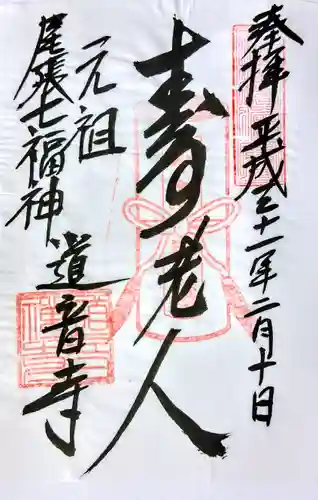 奉拝 平成二十一年二月十日
寿老人
元祖
尾張七福神
道音寺